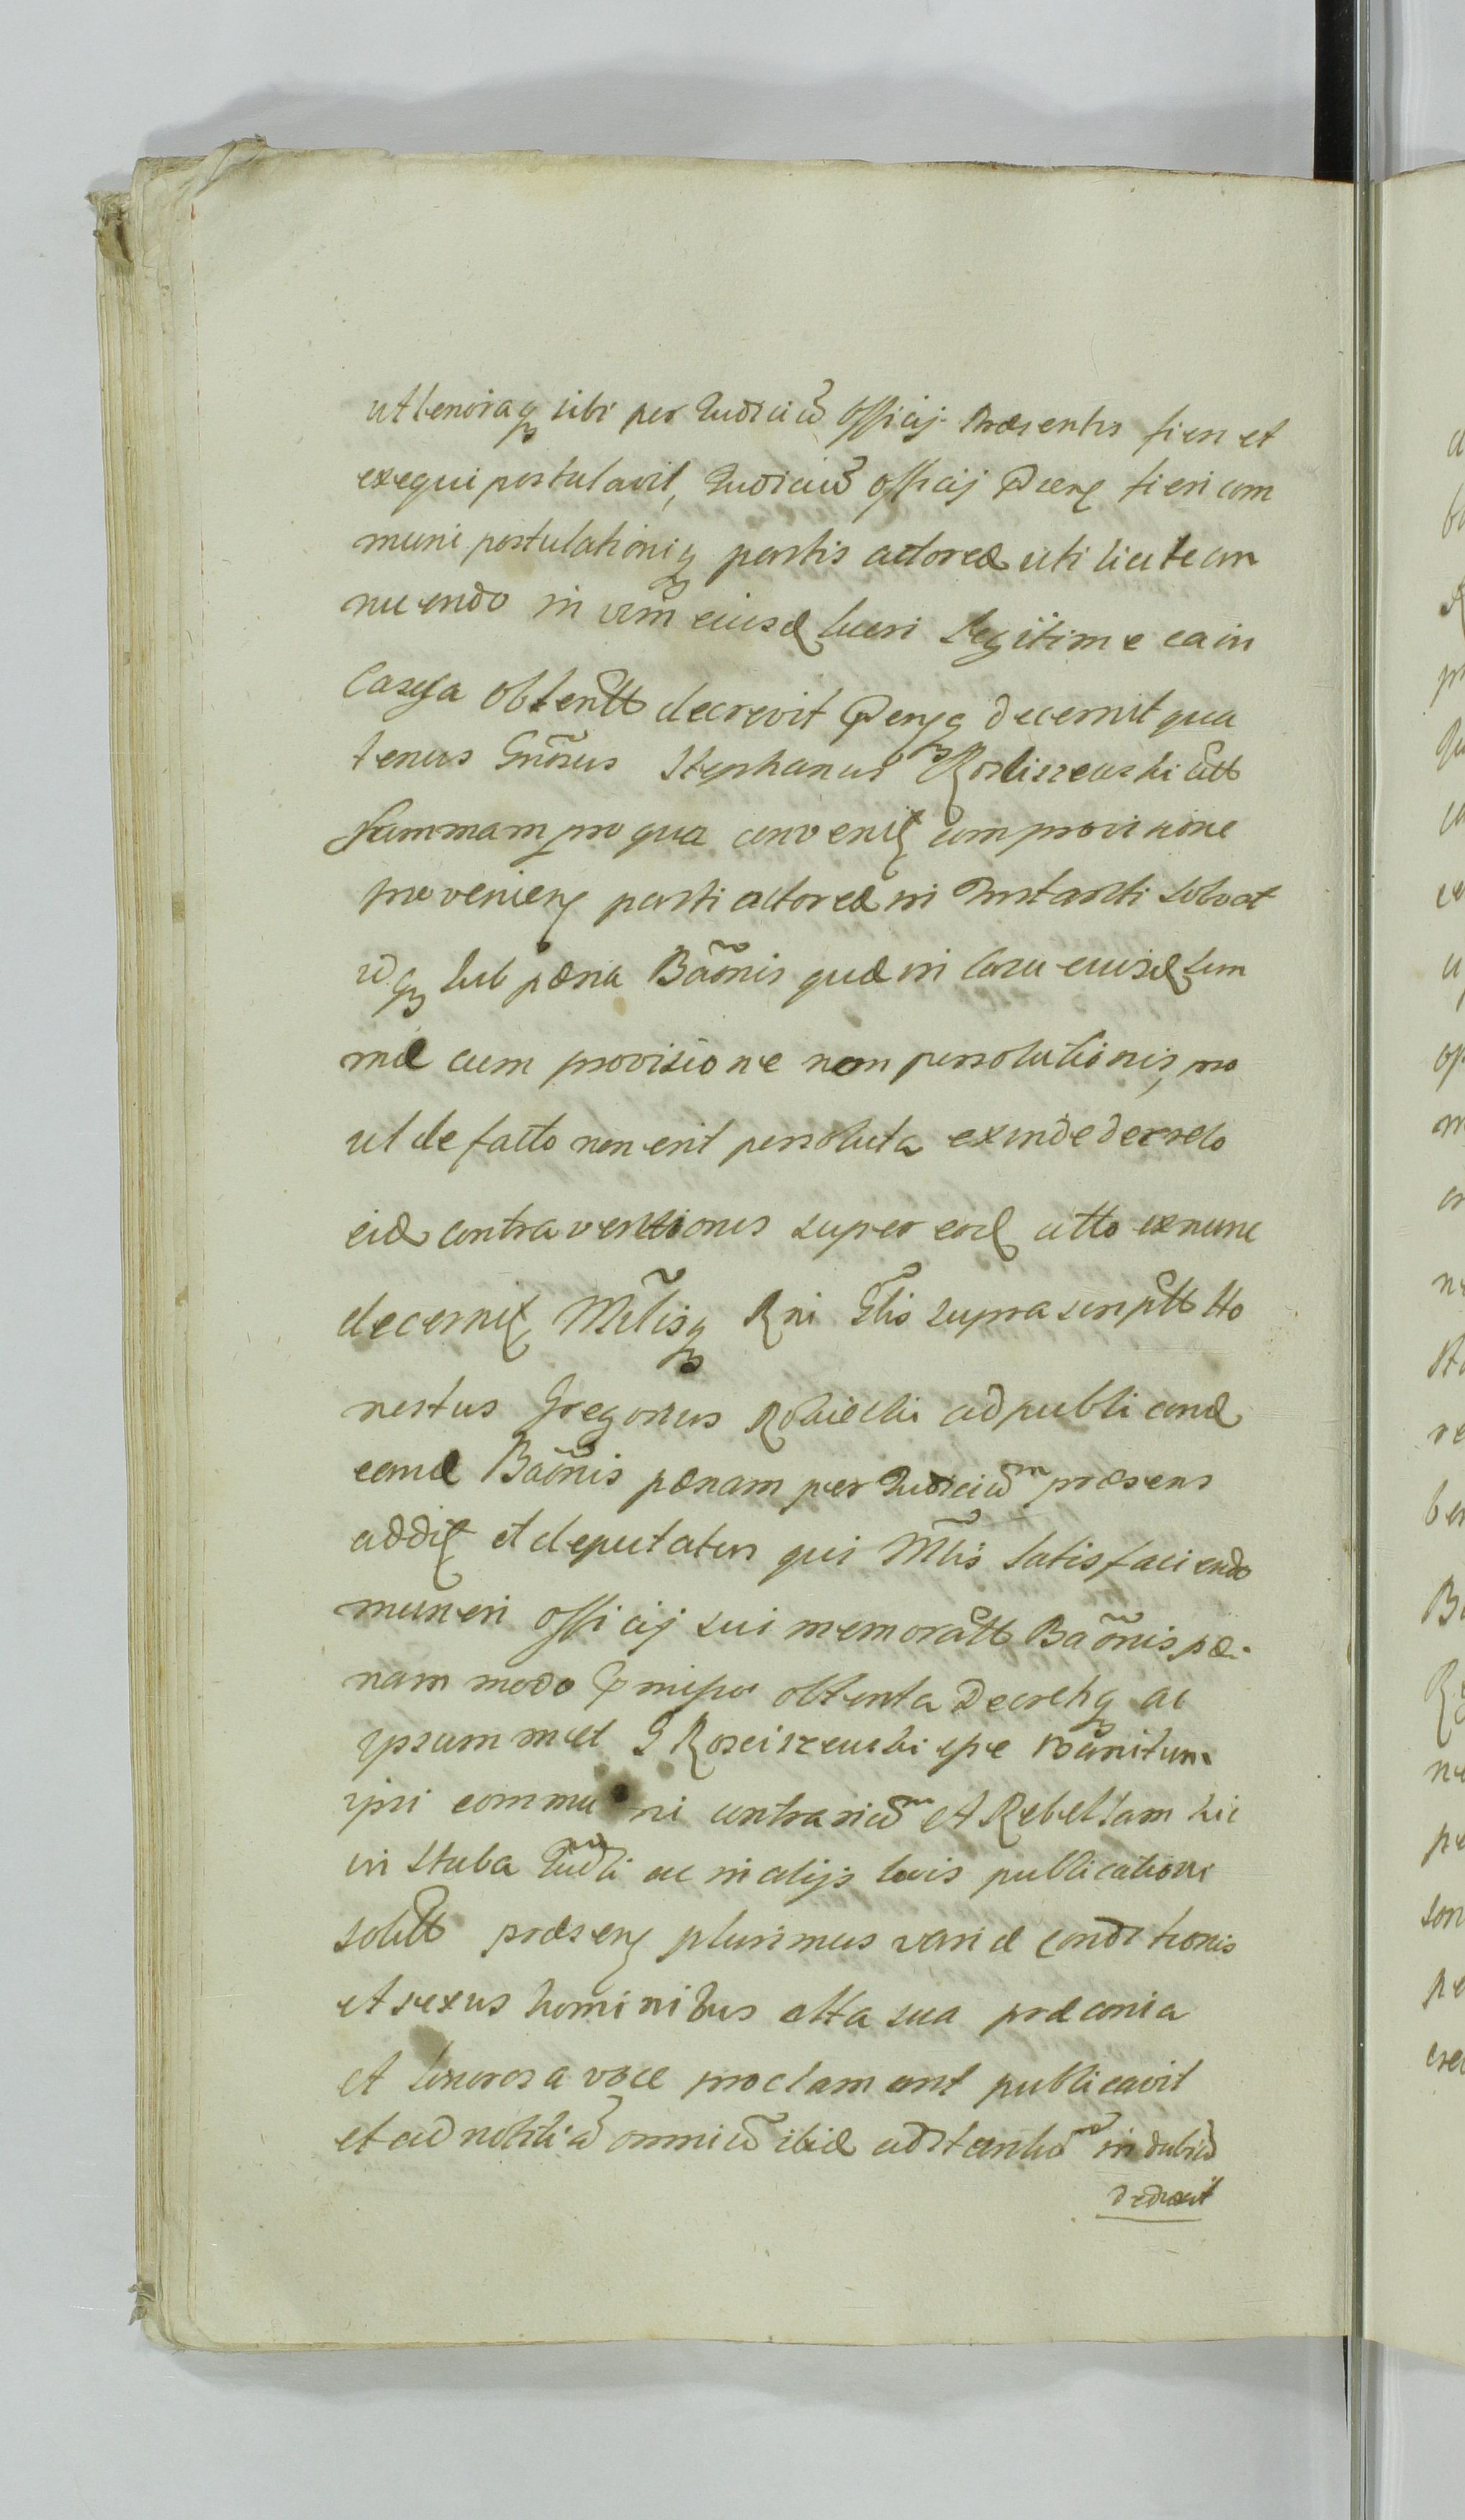 ulterioraq sibi per Judiciũ Officij Praesentis fieri et
exequi postulavit, Judiciũ officij Praeng fieri com
muni postulationiq partis actoreæ uti licite an
nuendo in vim eiusd lucri Legitime ea in
Causa obtentt decrevit Pensq decernit qua
tenus Gnosus Stephanus Rosciszewski att
Summam pro qua convenit cum provisione
provenieng parti actoreæ in Instanti solvat
idq sub pæna Bãonis quæ in casu eiusd sum
mæ cum provisione non persolutionis, pro
ut de facto non erit persoluta exinde decreto
eid contraventionis super eod acto ex nunc
decernit Mĩlisq Rni Glis supra scriptt Ho
nestus Gregorius Robiecki ad publicand
eand Bãonis pænam per Judiciũm præsens
addit et deputatus qui Mlis satisfaciendo
muneri officij sui memoratt Bãonis pæ-
nam modo præmisso obtenta Decretiq ac
ipsummet G Rosciszewski spe Banitum
ipsi communi contrariũm et Rebellam hic
in stuba Judli ac in alijs locis publicationi
solitt præseng plurimus variæ conditionis
et sexus hominibus alta sua præconia
et sonorosa voce proclamant publicavit
et ad notitiã omniũ ibid adstantiũ indubiã
deduxit